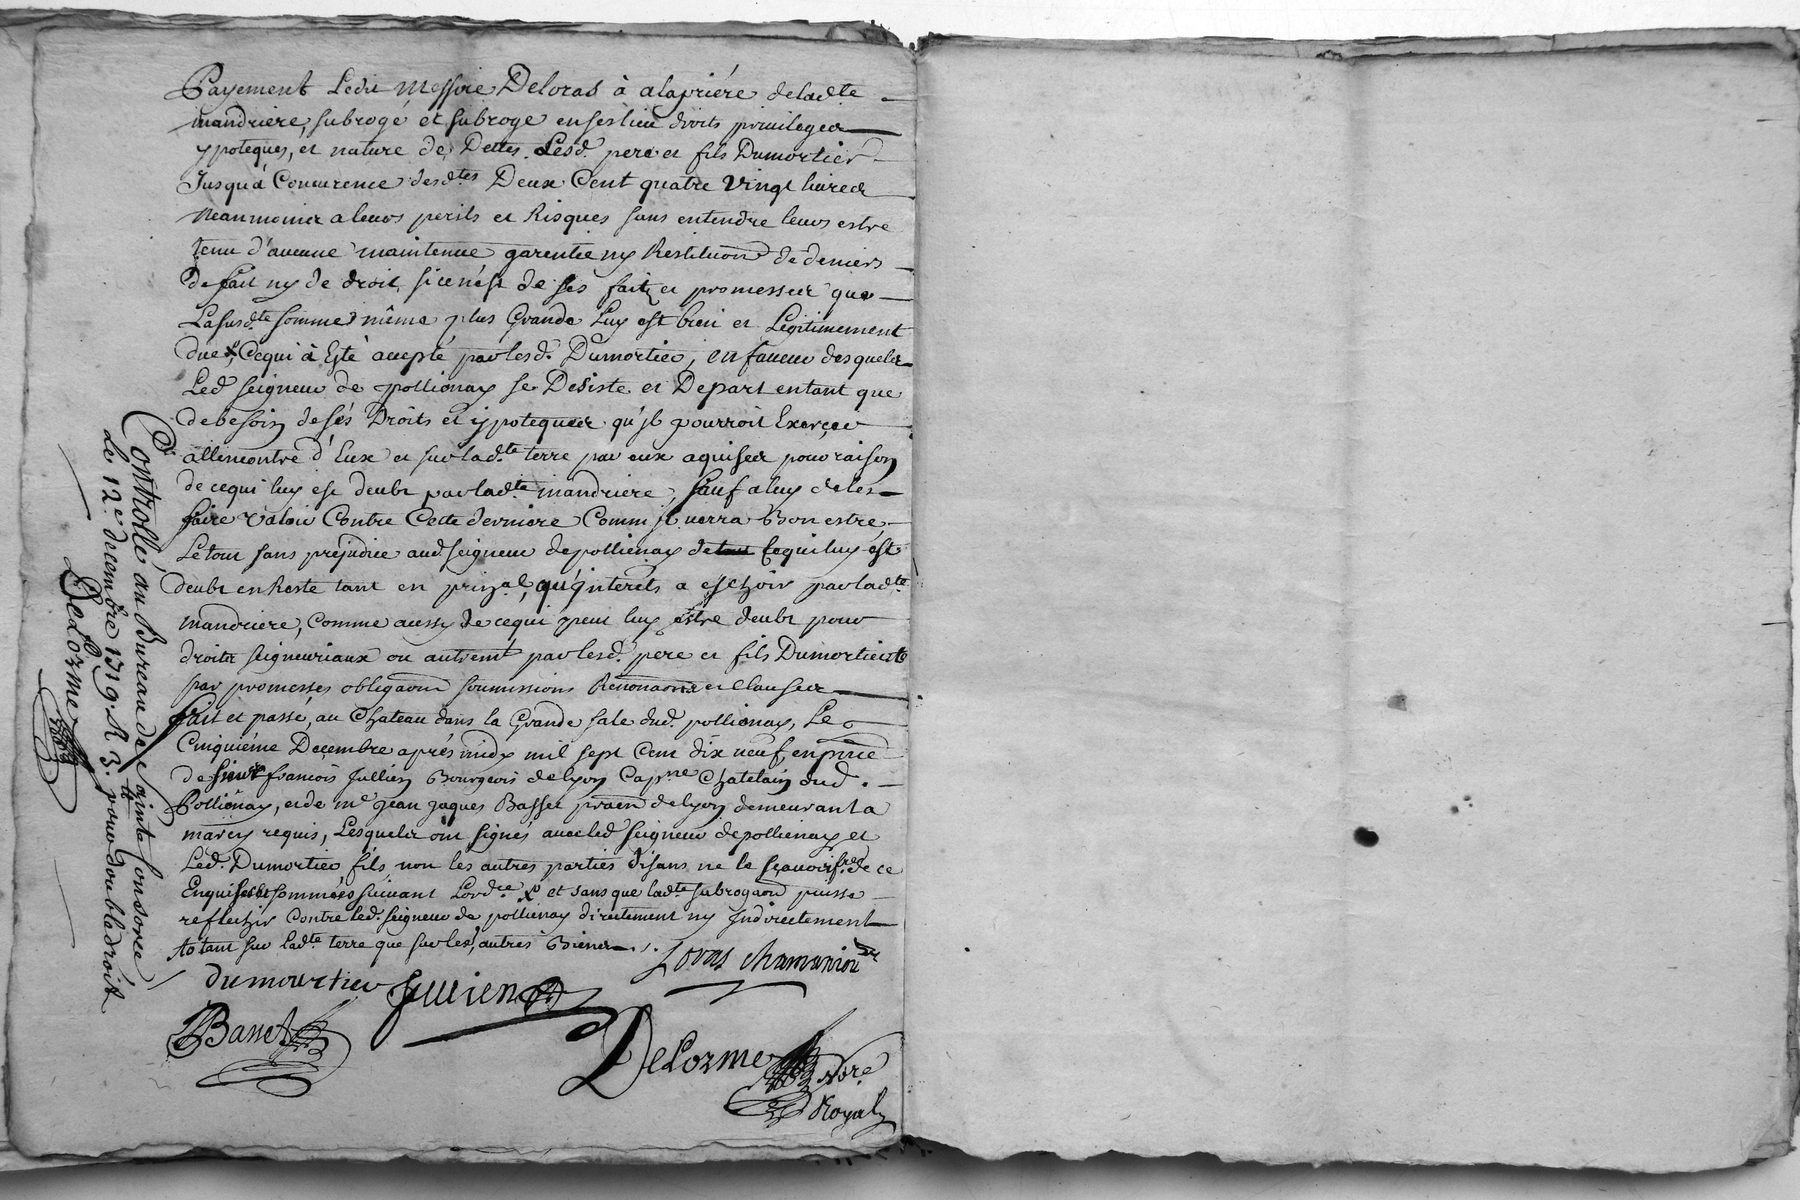 Payement Ledit Messire Deloras à alapriére delad.te
mandriere, subrogé et subroge enses lieu droits privileges
ypoteques, et nature de Dettes. Lesd. pere et fils Dumortier
Jusqu'à Concurence desd.tes Deux Cent quatre vingt livres
neanmoins a leurs perils et Risques sans entendre leurs estre
tenu d'aucune maintenue garentie ny Restitution de deniers
de fait ny de droit, si cen'est de ses faits et promesses que
Lasusd.te somme même plus Grande Luy est bien et Legitimement
due, Cequi à Esté accepté parlesd. Dumortier, en faveur desquels
Led. seigneur de pollionay se Desiste et Depart entant que
debesoin desés Droits et ypoteques qu'jl pourroit Exerçer
allencontre d'Eux et surlad.te terre par eux aquises pour raison
de cequi luy est deubt parlad.te mandriere, sauf aluy deles
faire valoir Contre Cette derniere Comm jl verra Bon estre
Letout sans préjudice aud. seigneur depollionay de Cequiluy est
deubt en Reste tant en prin.al, qu'jnterets a eschoir parlad.te
mandriere, comme aussy de cequi peut luy estre deubt pour
droits seigneuriaux ou autremt parlesd. pere et fils Dumortier
par promesses obligaons soumissions Renonaons et Clauses
fait et passé, au Chateau dans la Grande sale dud. pollionay, Le
Cinquiéme Decembre aprés midy mil sept Cent dix neuf, en pnce
de sieur françois Jullien Bourgeois delyon Cap.ne Chatelain dud.
Pollionay, et de me Jean Jaques Basset praen delyon demeurant a
marcy requis, Lesquels ont signés avecled seigneur depollionay et
Led. Dumortier fils, non les autres parties disans ne le sçavoir fre de ce
Enquises et sommées suivant Lord.ce x et sans que lad.te subrogaon puisse
reflechir Contre led. seigneur de pollionay directement ny Indirectement
tant sur lad.te terre que sur les autres Biens
Loras chamaniou
dumourtier Jullien
JJBasset
DeLorme Nore
Royal
Controllé au Bureau de Sainte Consorce
Le 12e decembre 1719. R 3.tt pour double droit
DeLorme